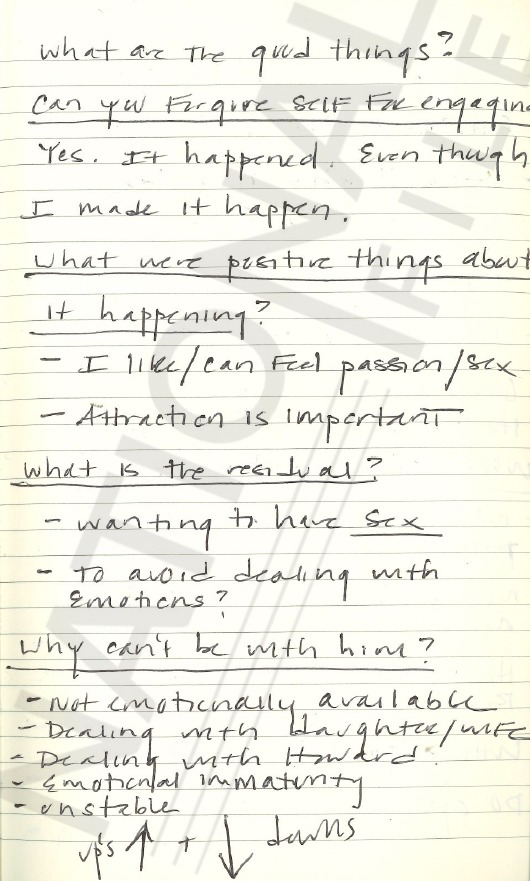 what are the good things?
Can you Forgive self For engaging
Yes. It happened. Even though
I made it happen.
what were positive things about
it happening?
- I like/can Feel passion/sex
- Attraction is important
what is the residual?
- wanting to have sex
- To avoid dealing with
Emotions?
Why can't be with him?
- Not emotionally available
- Dealing with daughter/wife
- Dealing with Howard
- Emotional immaturity
- unstable
up's ↑ + ↓ downs
NATIONAL
FILE